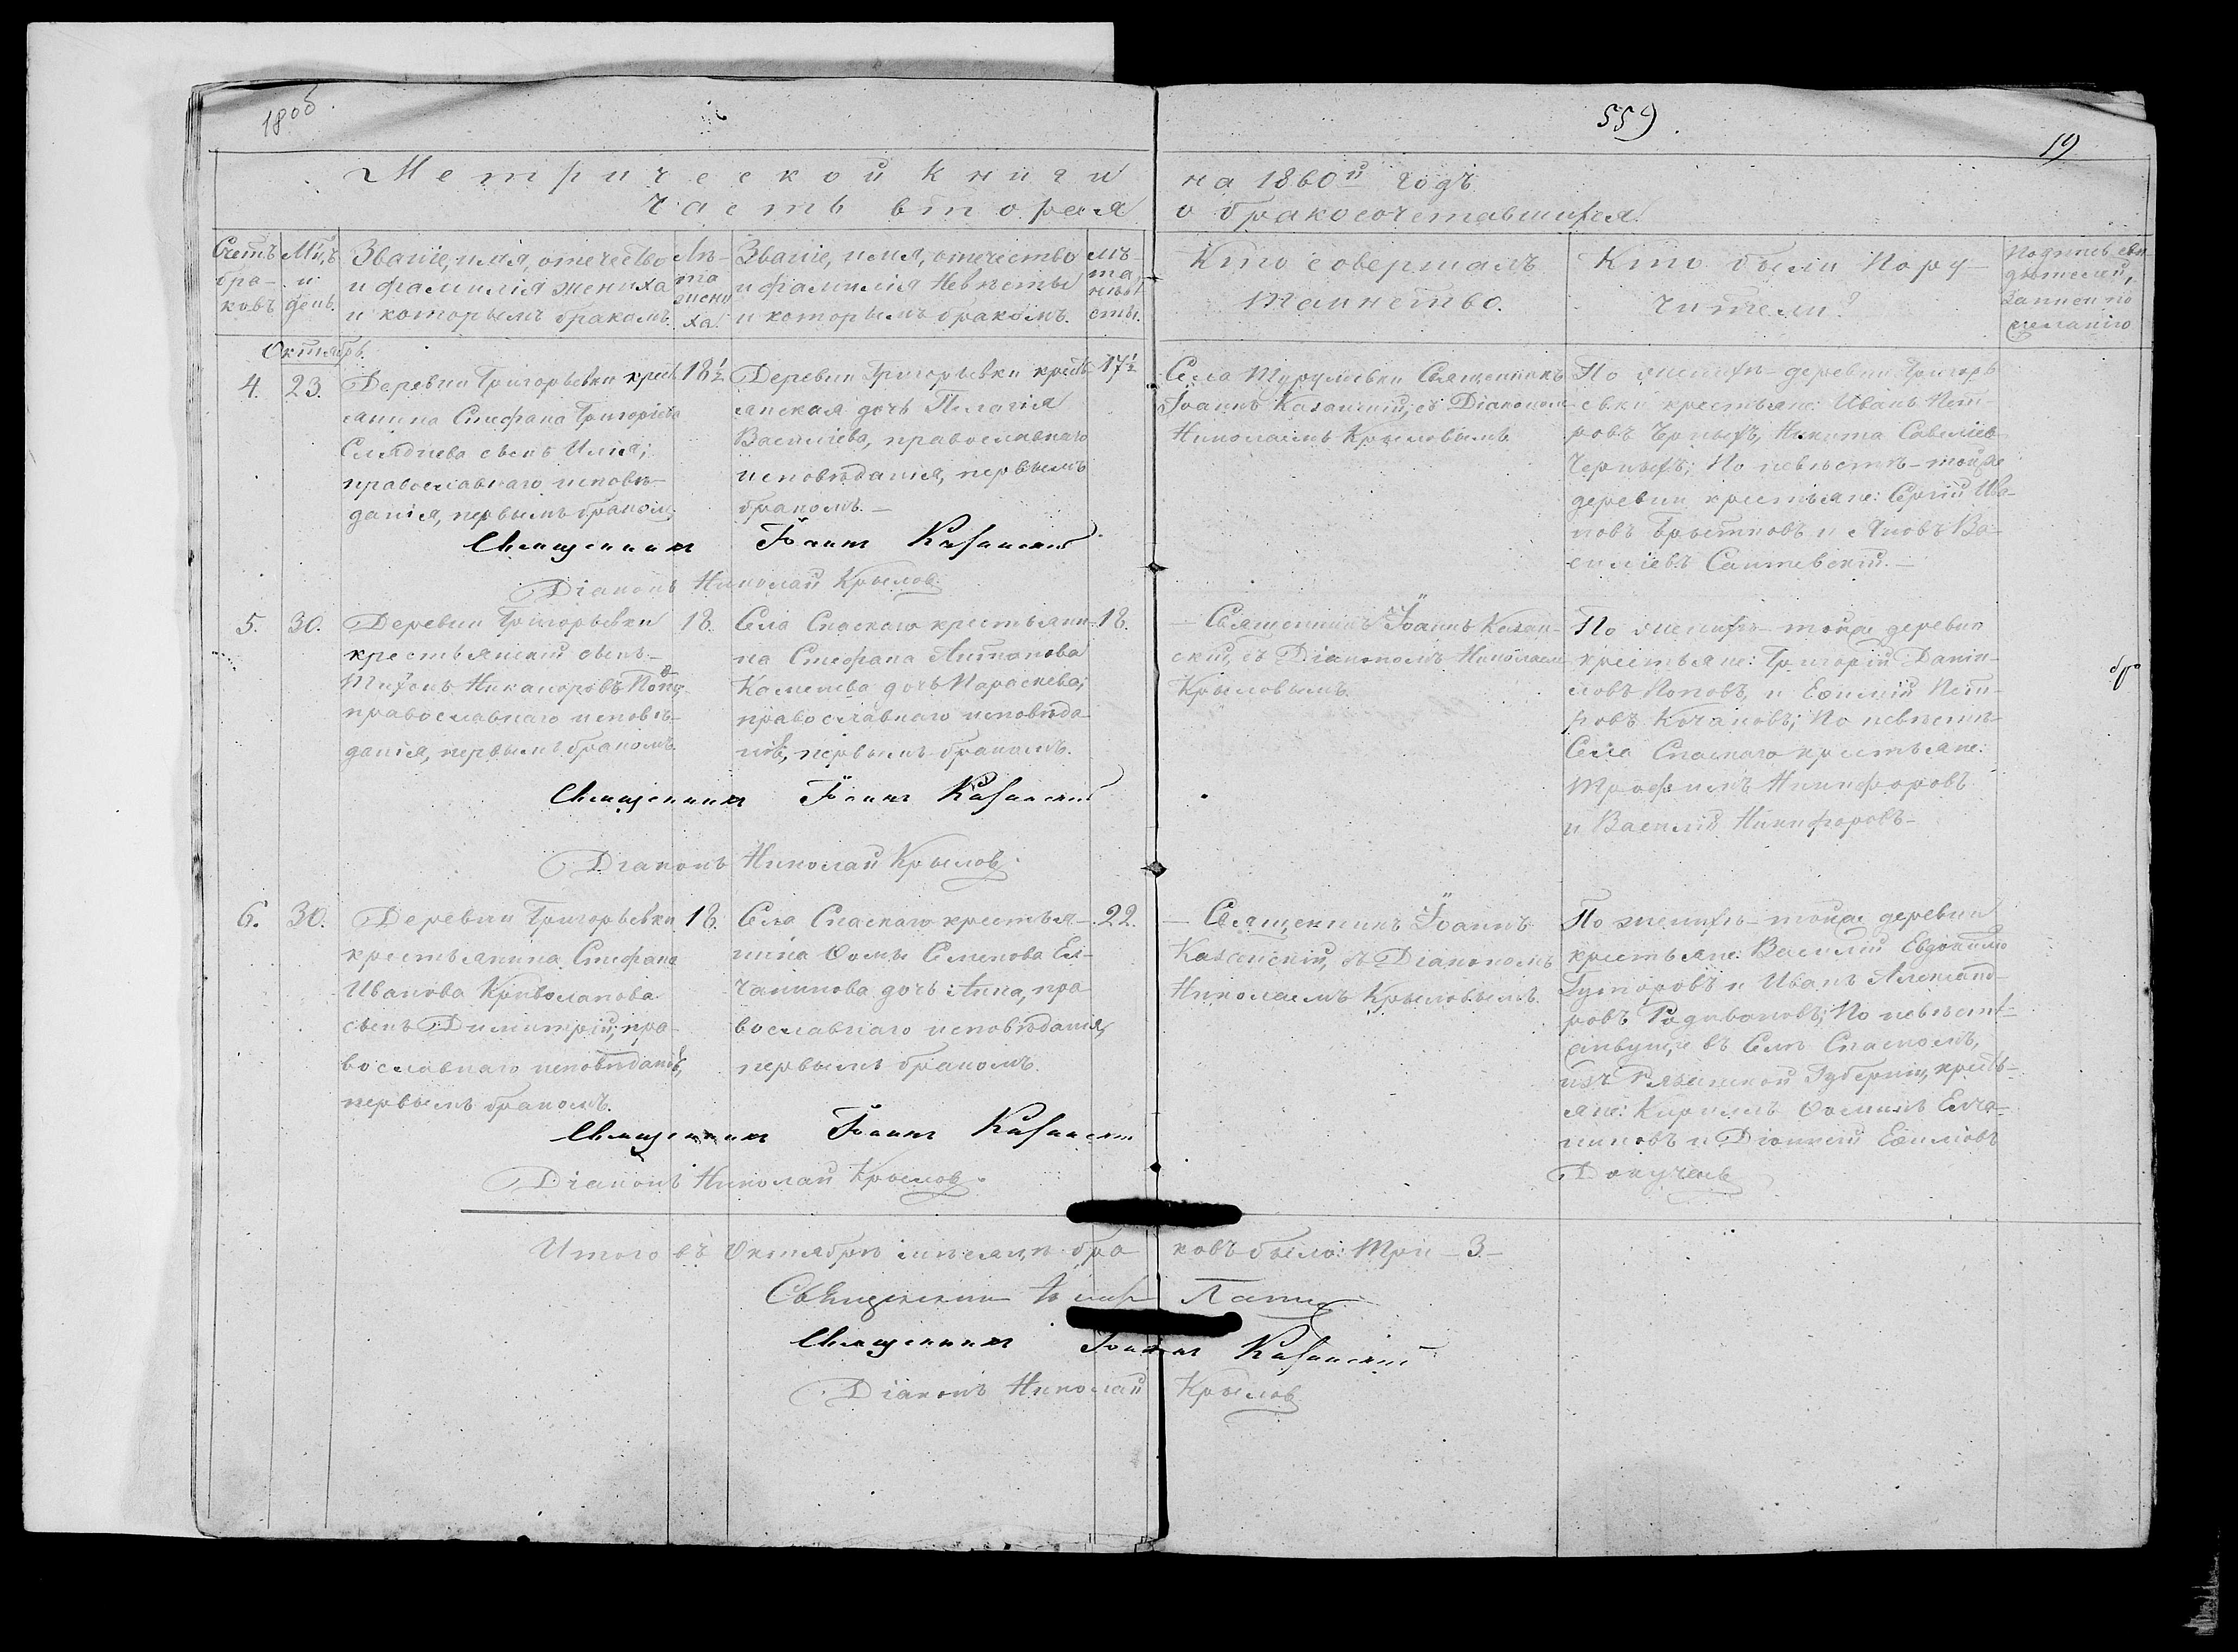 1806.
559.
19
Метрической книги
часть вторая
на 1860й годъ
о бракосочетавшихся.
Счетъ
бра-
ковъ
Мц,ъ
и
день.
Званіе, имя, отечество
и фамилія жениха
и которымъ бракомъ.
Лѣ-
та
жени
ха.
Званіе, имя, отечество
и фамилія Невѣсты
и которымъ бракомъ.
лѣ-
та
невѣ
сты.
Кто совершалъ
таинство.
Кто были Пору-
чители?
Подпись сви
дѣтелей,
записи по
желанію
Октябрь.
4.
23.
Деревни Григорьевки крест
янина Стефана Григоріева
сынъ Илія;
православнаго исповѣ-
данія, первымъ бракомъ
18½
Деревни Григорьевки кресть
янская дочь Пелагія
Василіева, православнаго
исповѣданія, первымъ
бракомъ. –
17½
Села Священникъ
Іоаннъ Казанскій, съ Діакономъ
Николаемъ Крыловымъ
По женихѣ – деревни Григорь
евки крестьяне: Иванъ Пет-
ровъ Черныхъ, Никита Савеліев
Черныхъ; По невѣстѣ – тойже
деревни крестьяне: Сергій Ива-
новъ и Яковъ Ва-
силіевъ
Священникъ Іоаннъ Казанскій
Діаконъ Николай Крылов.
5.
30.
Деревни Григорьевки
крестьянскій сынъ –
Никаноровъ Поповъ
православнаго исповѣ-
данія, первымъ бракомъ
18.
Села Спаскаго крестьяни-
на Стефана Антонова
дочь Параскева;
православнаго исповѣда-
нія, первымъ бракомъ.
18.
– Священникъ Іоаннъ Казан-
скій, съ Діакономъ Николаем
Крыловымъ.
По женихѣ – тойже деревни
крестьяне: Григорій Даніи-
ловъ Поповъ, и Пет-
ровъ Кочановъ; По невѣстѣ
Села Спаскаго крестьяне:
Трофимъ Никифоровъ
и Василій Никифоровъ –
Священникъ Іоаннъ Казанскій
Діаконъ Николай Крылов.
6.
30.
Деревни Григорьевки
крестьянина Стефана
Иванова Криволанова
сынъ Димитрій; пра-
вославнаго исповѣданія,
первымъ бракомъ.
18.
Села Спаскаго крестья-
нина Ѳомы Семенова Ел-
чанинова дочь Анна, пра-
вославнаго исповѣданія,
первымъ бракомъ.
22.
– Священникъ Іоаннъ
Казанскій, съ Діакономъ
Николаемъ Крыловымъ.
По женихѣ – тойже деревни
крестьяне: Василій Евдокимо
и Иванъ Александ-
ровъ Родивоновъ; По невѣстѣ –
живущіе въ Селѣ Спаскомъ,
изъ Рязанской Губерніи, кресть-
яне: Кириллъ Ѳоминъ Елча-
ниновъ и Діонисій
Докучаев
Священникъ Іоаннъ Казанскій
Діаконъ Николай Крылов.
Итого въ Октябрѣ мѣсяцѣ бра ковъ было: Три – 3 –
Священникъ
Священникъ Іоаннъ Казанскій
Діаконъ Николай Крылов